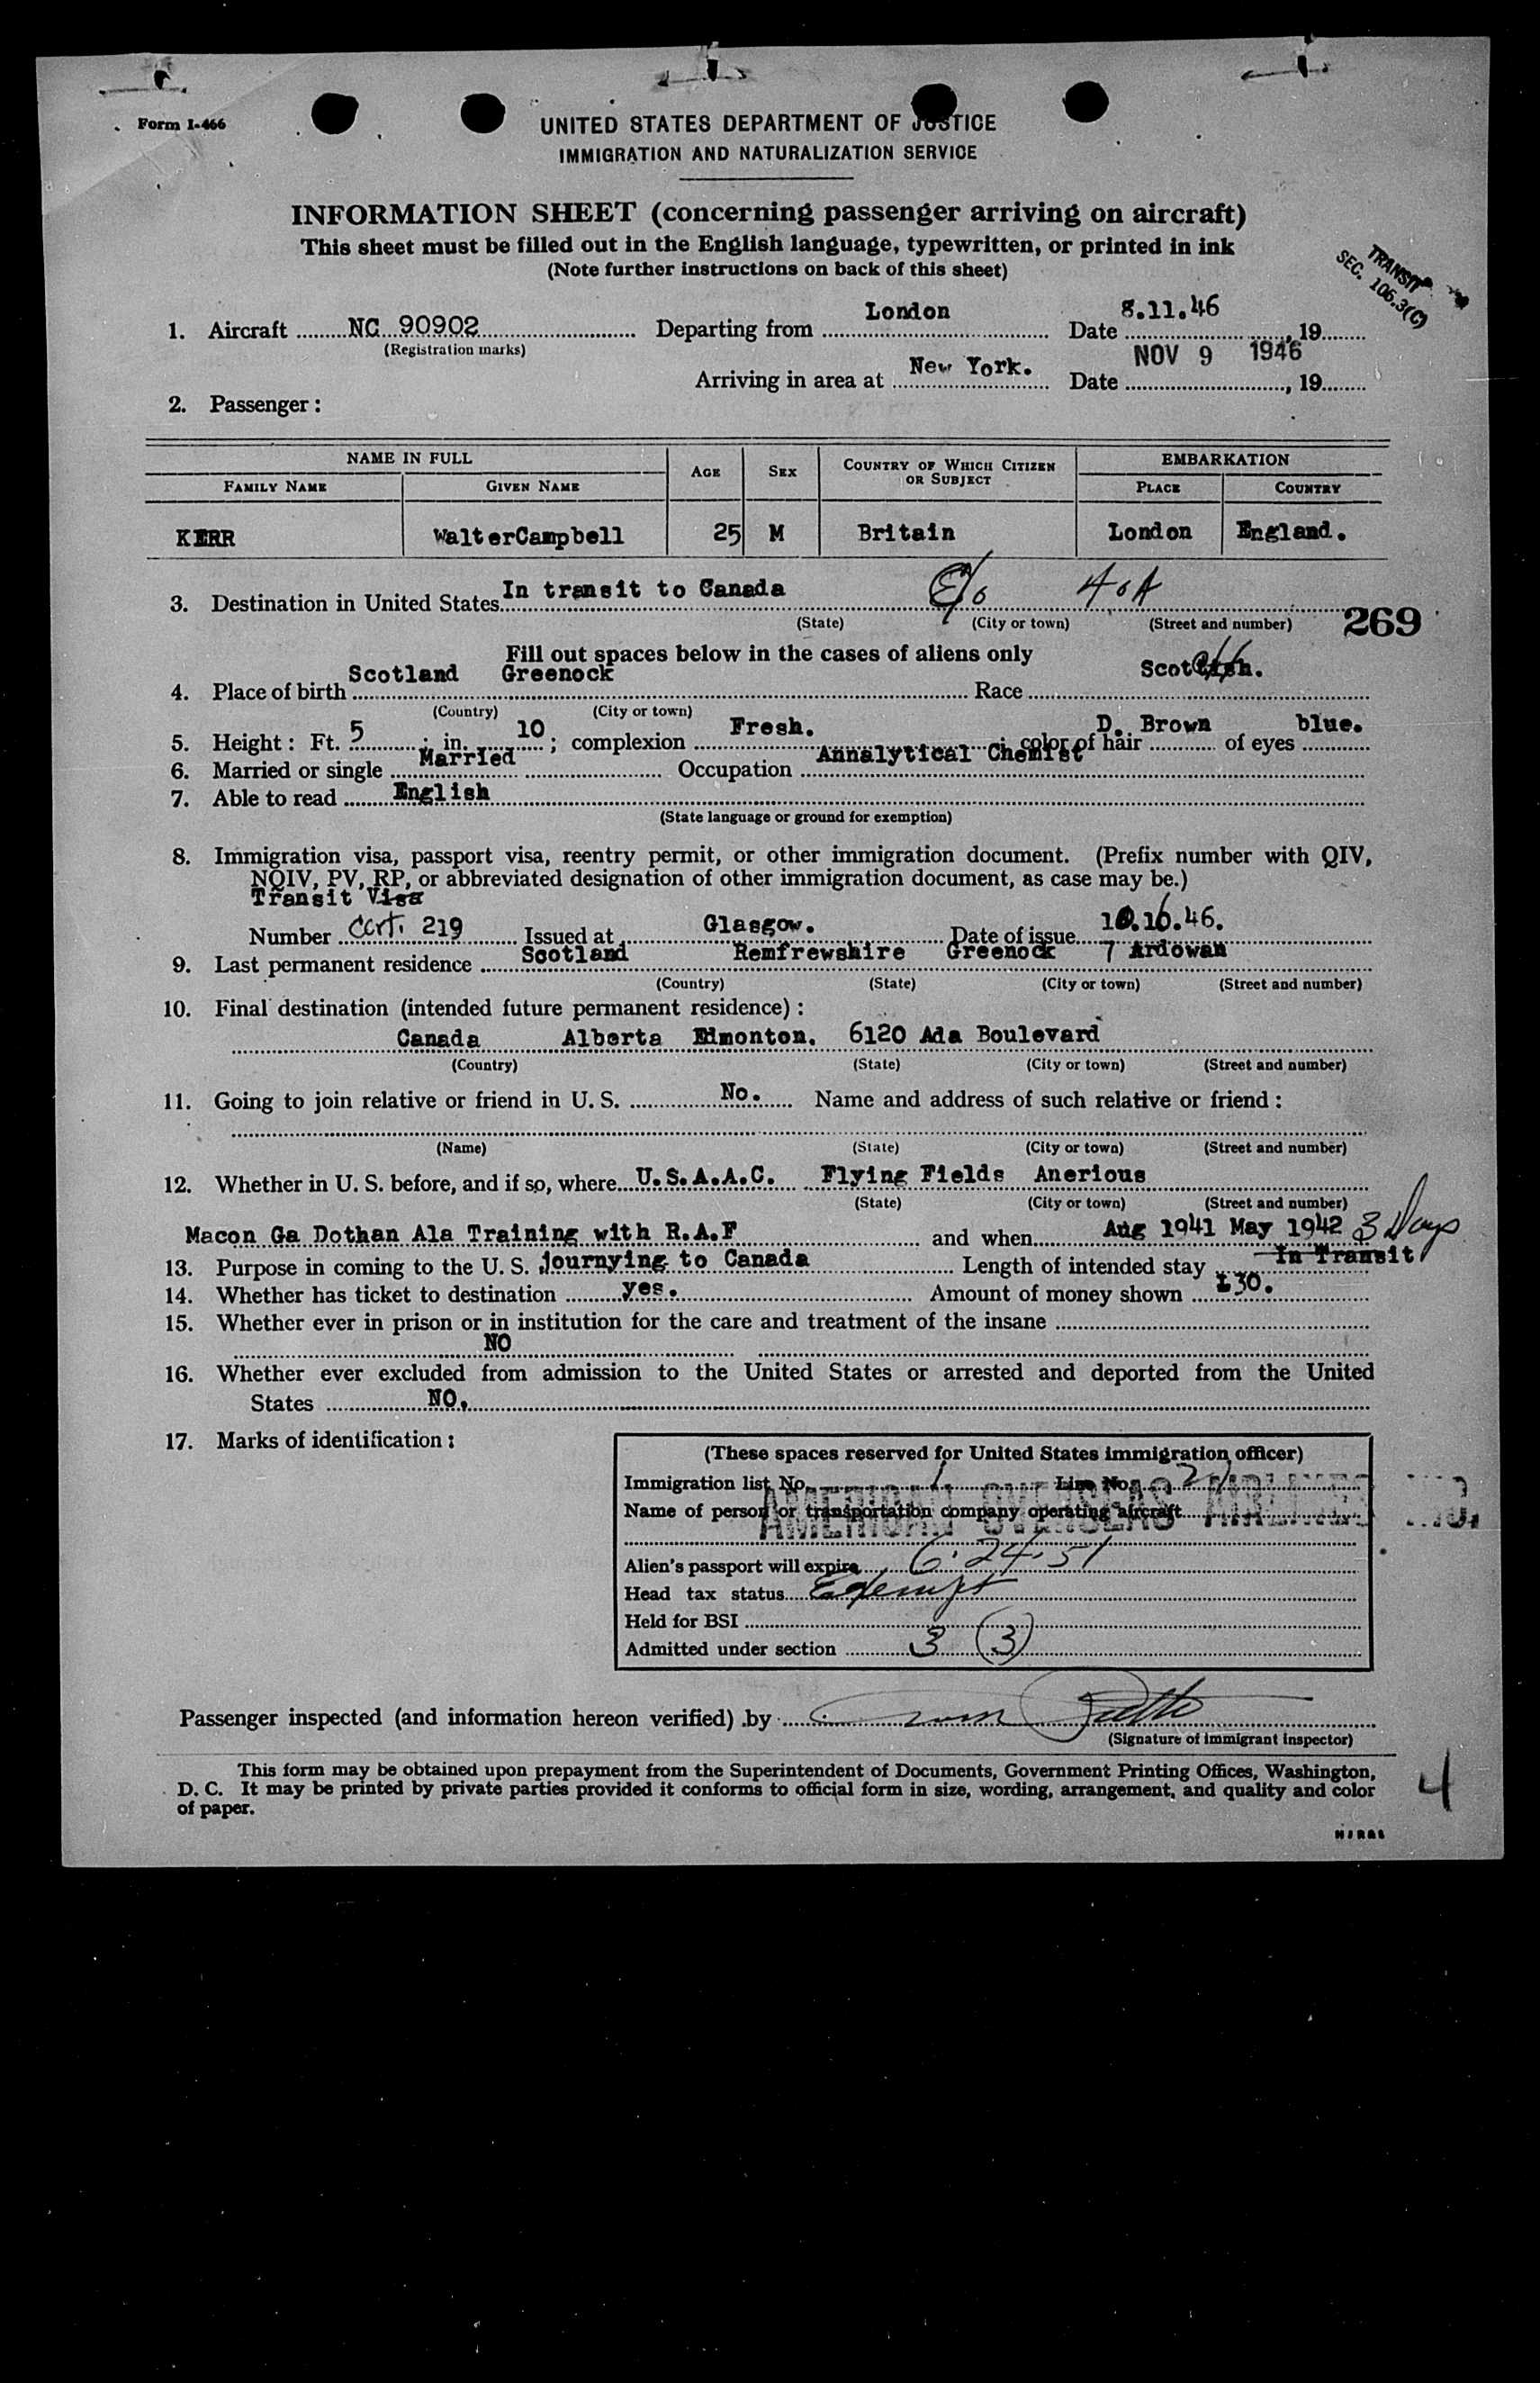 Form I-466
UNITED STATES DEPARTMENT OF JUSTICE
IMMIGRATION AND NATURALIZATION SERVICE
INFORMATION SHEET (concerning passenger arriving on aircraft)
This sheet must be filled out in the English language, typewritten, or printed in ink
(Note further instructions on back of this sheet)
TRANSIT
SEC. 106.3(C)
1. Aircraft NC 90902 Departing from London Date 8.11.46, 19
(Registration marks)
Arriving in area at New York. Date NOV 9 1946, 19
2. Passenger:
NAME IN FULL AGE SEX COUNTRY OF WHICH CITIZEN OR SUBJECT EMBARKATION
FAMILY NAME GIVEN NAME PLACE COUNTRY
KERR WalterCampbell 25 M Britain London England.
3. Destination in United States In transit to Canada C/o AOA
(State) (City or town) (Street and number) 269
Fill out spaces below in the cases of aliens only
4. Place of birth Scotland Greenock Race Scottish.
(Country) (City or town)
5. Height: Ft. 5; in. 10; complexion Fresh.; color of hair D. Brown of eyes blue.
6. Married or single Married Occupation Annalytical Chemist
7. Able to read English
(State language or ground for exemption)
8. Immigration visa, passport visa, reentry permit, or other immigration document. (Prefix number with QIV,
NQIV, PV, RP, or abbreviated designation of other immigration document, as case may be.)
Transit Visa
Number Cert. 219 Issued at Glasgow. Date of issue 16.10.46.
9. Last permanent residence Scotland Remfrewshire Greenock 7 Ardowan
(Country) (State) (City or town) (Street and number)
10. Final destination (intended future permanent residence):
Canada Alberta Edmonton. 6120 Ada Boulevard
(Country) (State) (City or town) (Street and number)
11. Going to join relative or friend in U. S. No. Name and address of such relative or friend:
(Name) (State) (City or town) (Street and number)
12. Whether in U. S. before, and if so, where U.S.A.A.C. Flying Fields Anerious
(State) (City or town) (Street and number)
Macon Ga Dothan Ala Training with R.A.F and when Aug 1941 May 1942 3 Days
13. Purpose in coming to the U. S. journying to Canada Length of intended stay In Transit
14. Whether has ticket to destination yes. Amount of money shown £30.
15. Whether ever in prison or in institution for the care and treatment of the insane
NO
16. Whether ever excluded from admission to the United States or arrested and deported from the United
States NO.
17. Marks of identification:
(These spaces reserved for United States immigration officer)
Immigration list No. 1 Line No. 21
Name of person or transportation company operating aircraft
AMERICAN OVERSEAS AIRLINES INC.
Alien's passport will expire 6.24.51
Head tax status Exempt
Held for BSI
Admitted under section 3 (3)
Passenger inspected (and information hereon verified) by
(Signature of immigrant inspector)
This form may be obtained upon prepayment from the Superintendent of Documents, Government Printing Offices, Washington,
D. C. It may be printed by private parties provided it conforms to official form in size, wording, arrangement, and quality and color
of paper.
4